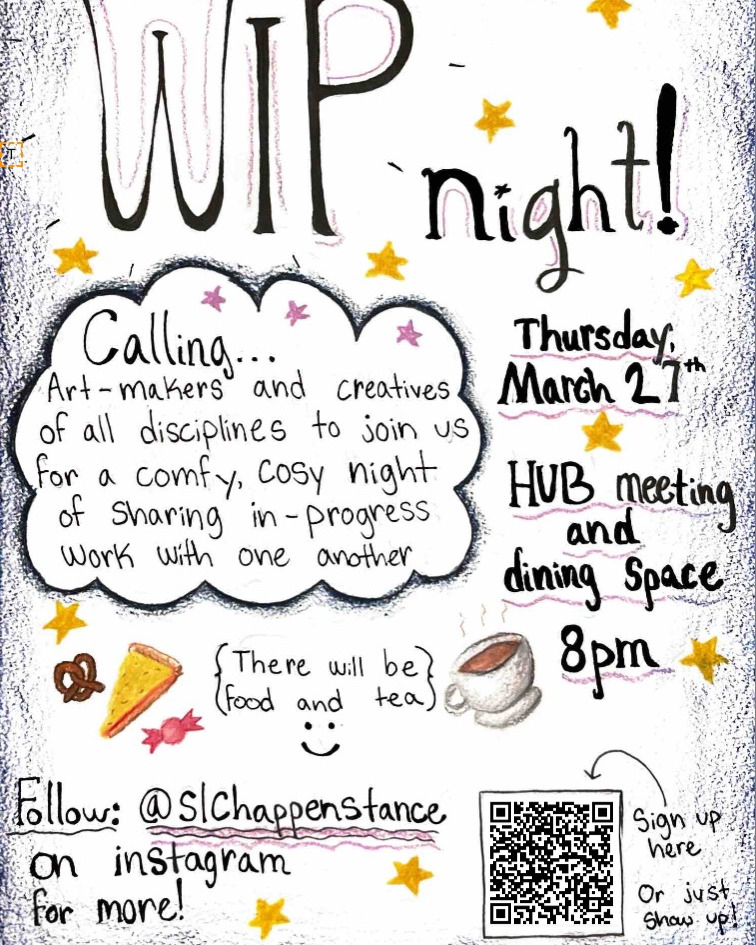 WIP
night!
Calling...
Art-makers and creatives
of all disciplines to join us
for a comfy, cosy night
of sharing in-progress
work with one another
Thursday,
March 27th
HUB meeting
and
dining space
8pm
{There will be}
{food and tea}
Follow: @slchappenstance
on instagram
for more!
Sign up
here
Or just
show up!